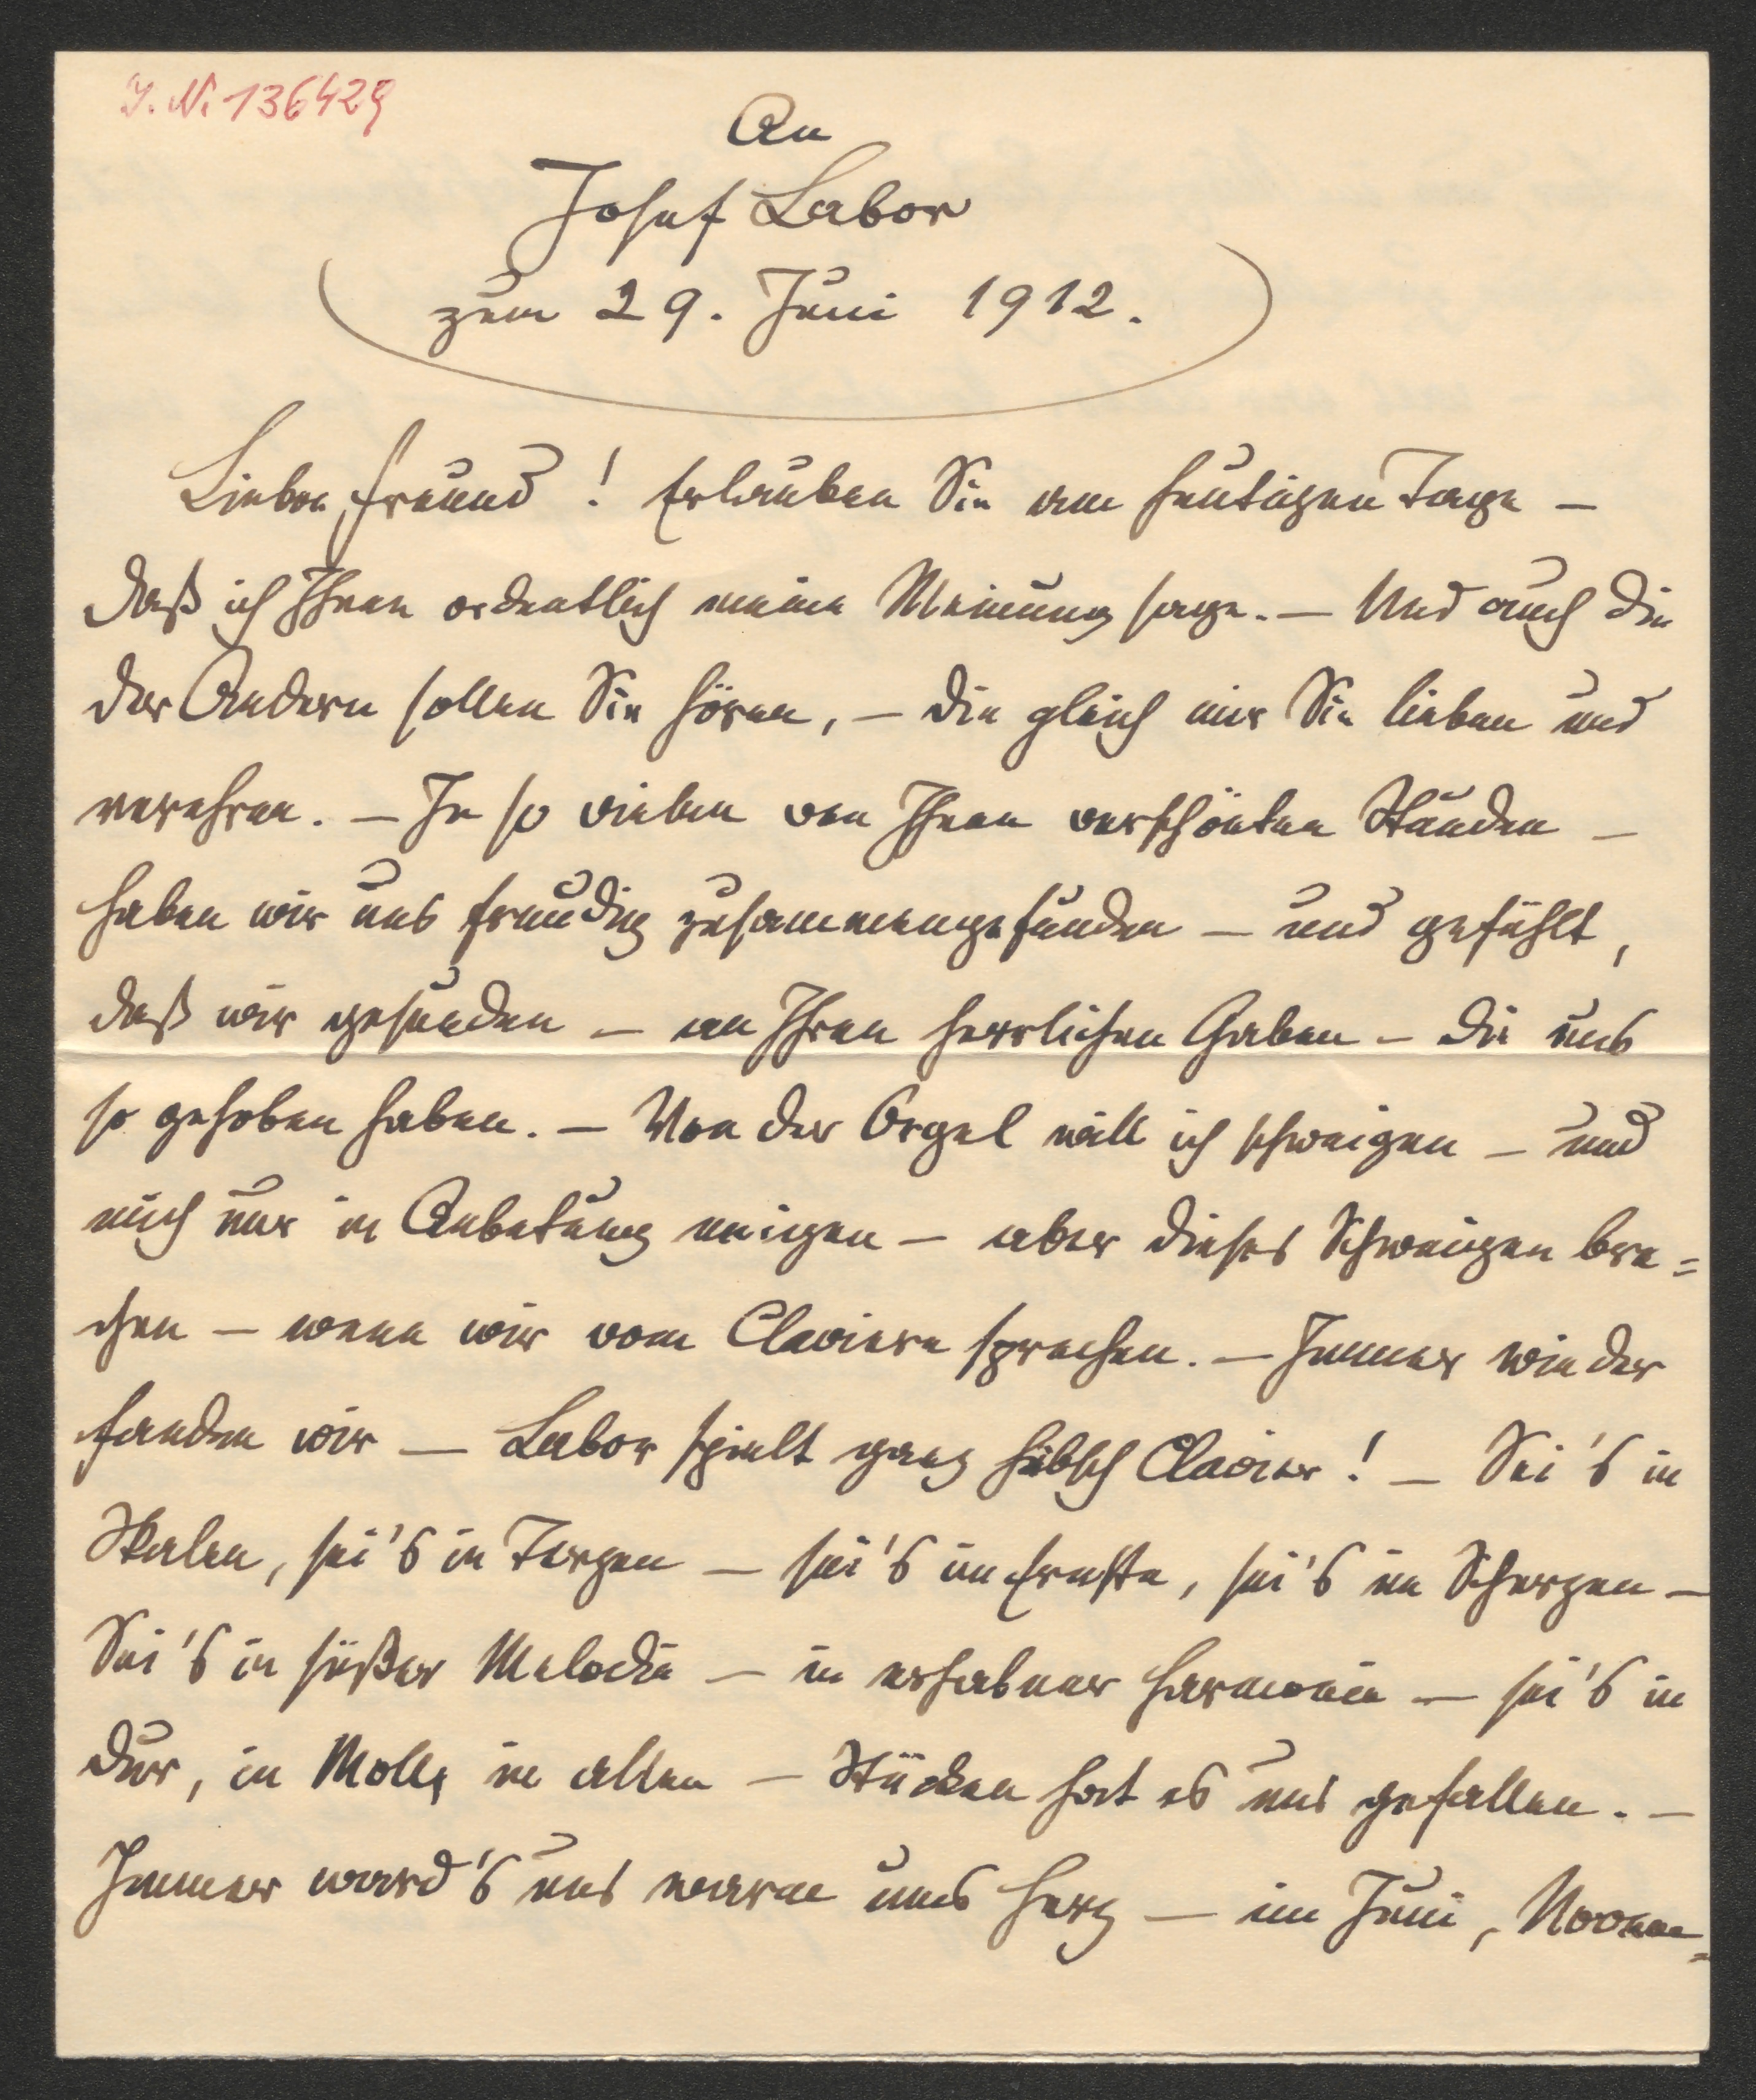 I. N. 136429
An
Josef Labor
zum 29. Juni 1912.
Lieber Freund! Erlauben Sie am heutigen Tage –
daß ich Ihnen ordentlich meine Meinung sage. – Und auch die
der Andern sollen Sie hören, – die gleich mir Sie lieben und
verehren. – In so vielen von Ihnen verschönten Stunden –
haben wir uns freudig zusammengefunden – und gefühlt,
daß wir gesunden – an Ihren herrlichen Gaben – die uns
so gehoben haben. – Von der Orgel will ich schweigen – und
mich nur in Anbetung neigen – aber dieses Schweigen bre=
chen – wenn wir vom Claviere sprechen. – Immer wieder
fanden wir – Labor spielt ganz hübsch Clavier! – Sei's in
Skalen, sei's in Terzen – sei's im Ernste, sei's im Scherzen –
Sei's in süßer Melodie – in erhabner Harmonie – sei's in
Dur, in Moll, in allen – Stücken hat es uns gefallen. –
Immer ward's uns warm ums Herz – im Juni, Novem=